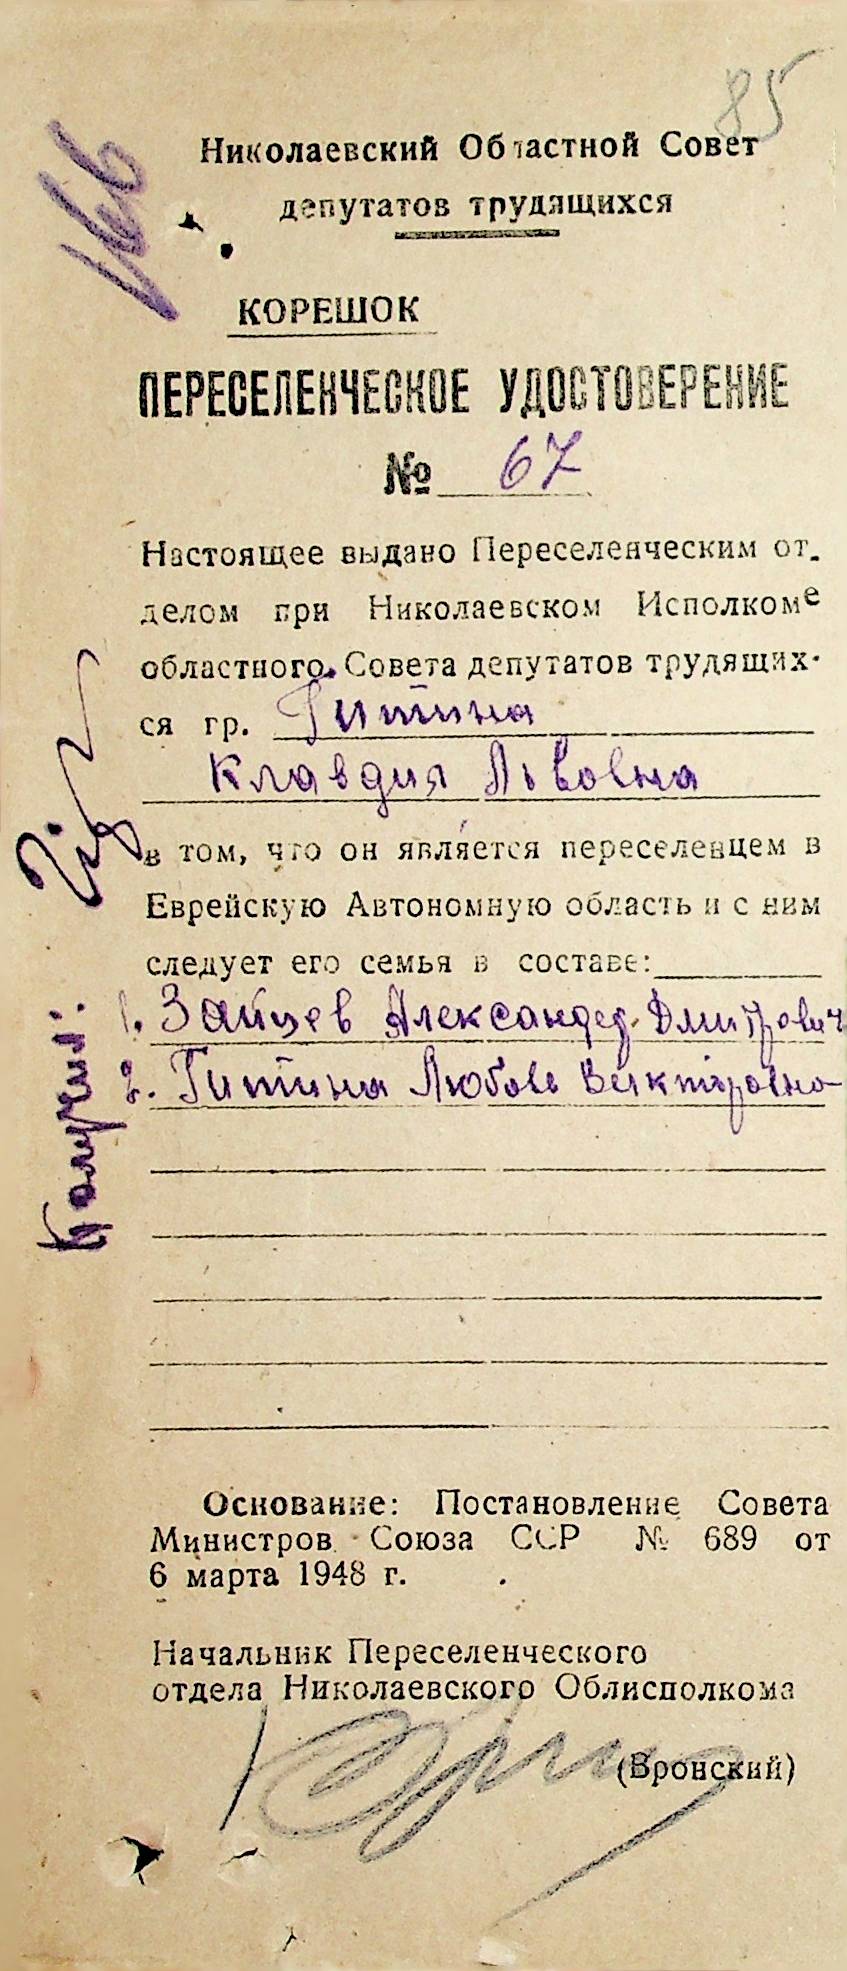 85
Николаевский Областной Совет
депутатов трудящихся
КОРЕШОК
ПЕРЕСЕЛЕНЧЕСКОЕ УДОСТОВЕРЕНИЕ
№ 67
Настоящее выдано Переселенческим от-
делом при Николаевском Исполкоме
областного Совета депутатов трудящих-
ся гр. Гитина
Клавдия Львовна
в том, что он является переселенцем в
Еврейскую Автономную область и с ним
следует его семья в составе:
1. Зайцев Александр Дмитрович
2. Гитина Любовь Викторовна
Получил:
Основание: Постановление Совета
Министров Союза ССР № 689 от
6 марта 1948 г.
Начальник Переселенческого
отдела Николаевского Облисполкома
(Вронский)